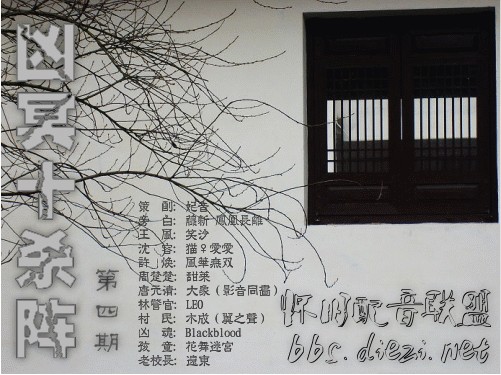 凶冥十杀阵
第四期
策 劃：妃音
旁 白：蘇新 鳳凰長離
王 風：笑沙
沈 容：猫♀愛愛
許 燒：風華無双
周楚楚：甜菜
唐元清：大泉（影音同盡）
林警官：LEO
村 民：木成（翼之聲）
凶 魂：Blackblood
孩 童：花舞迷宮
老校長：遠東
怀旧配音联盟
bbs.diezi.net